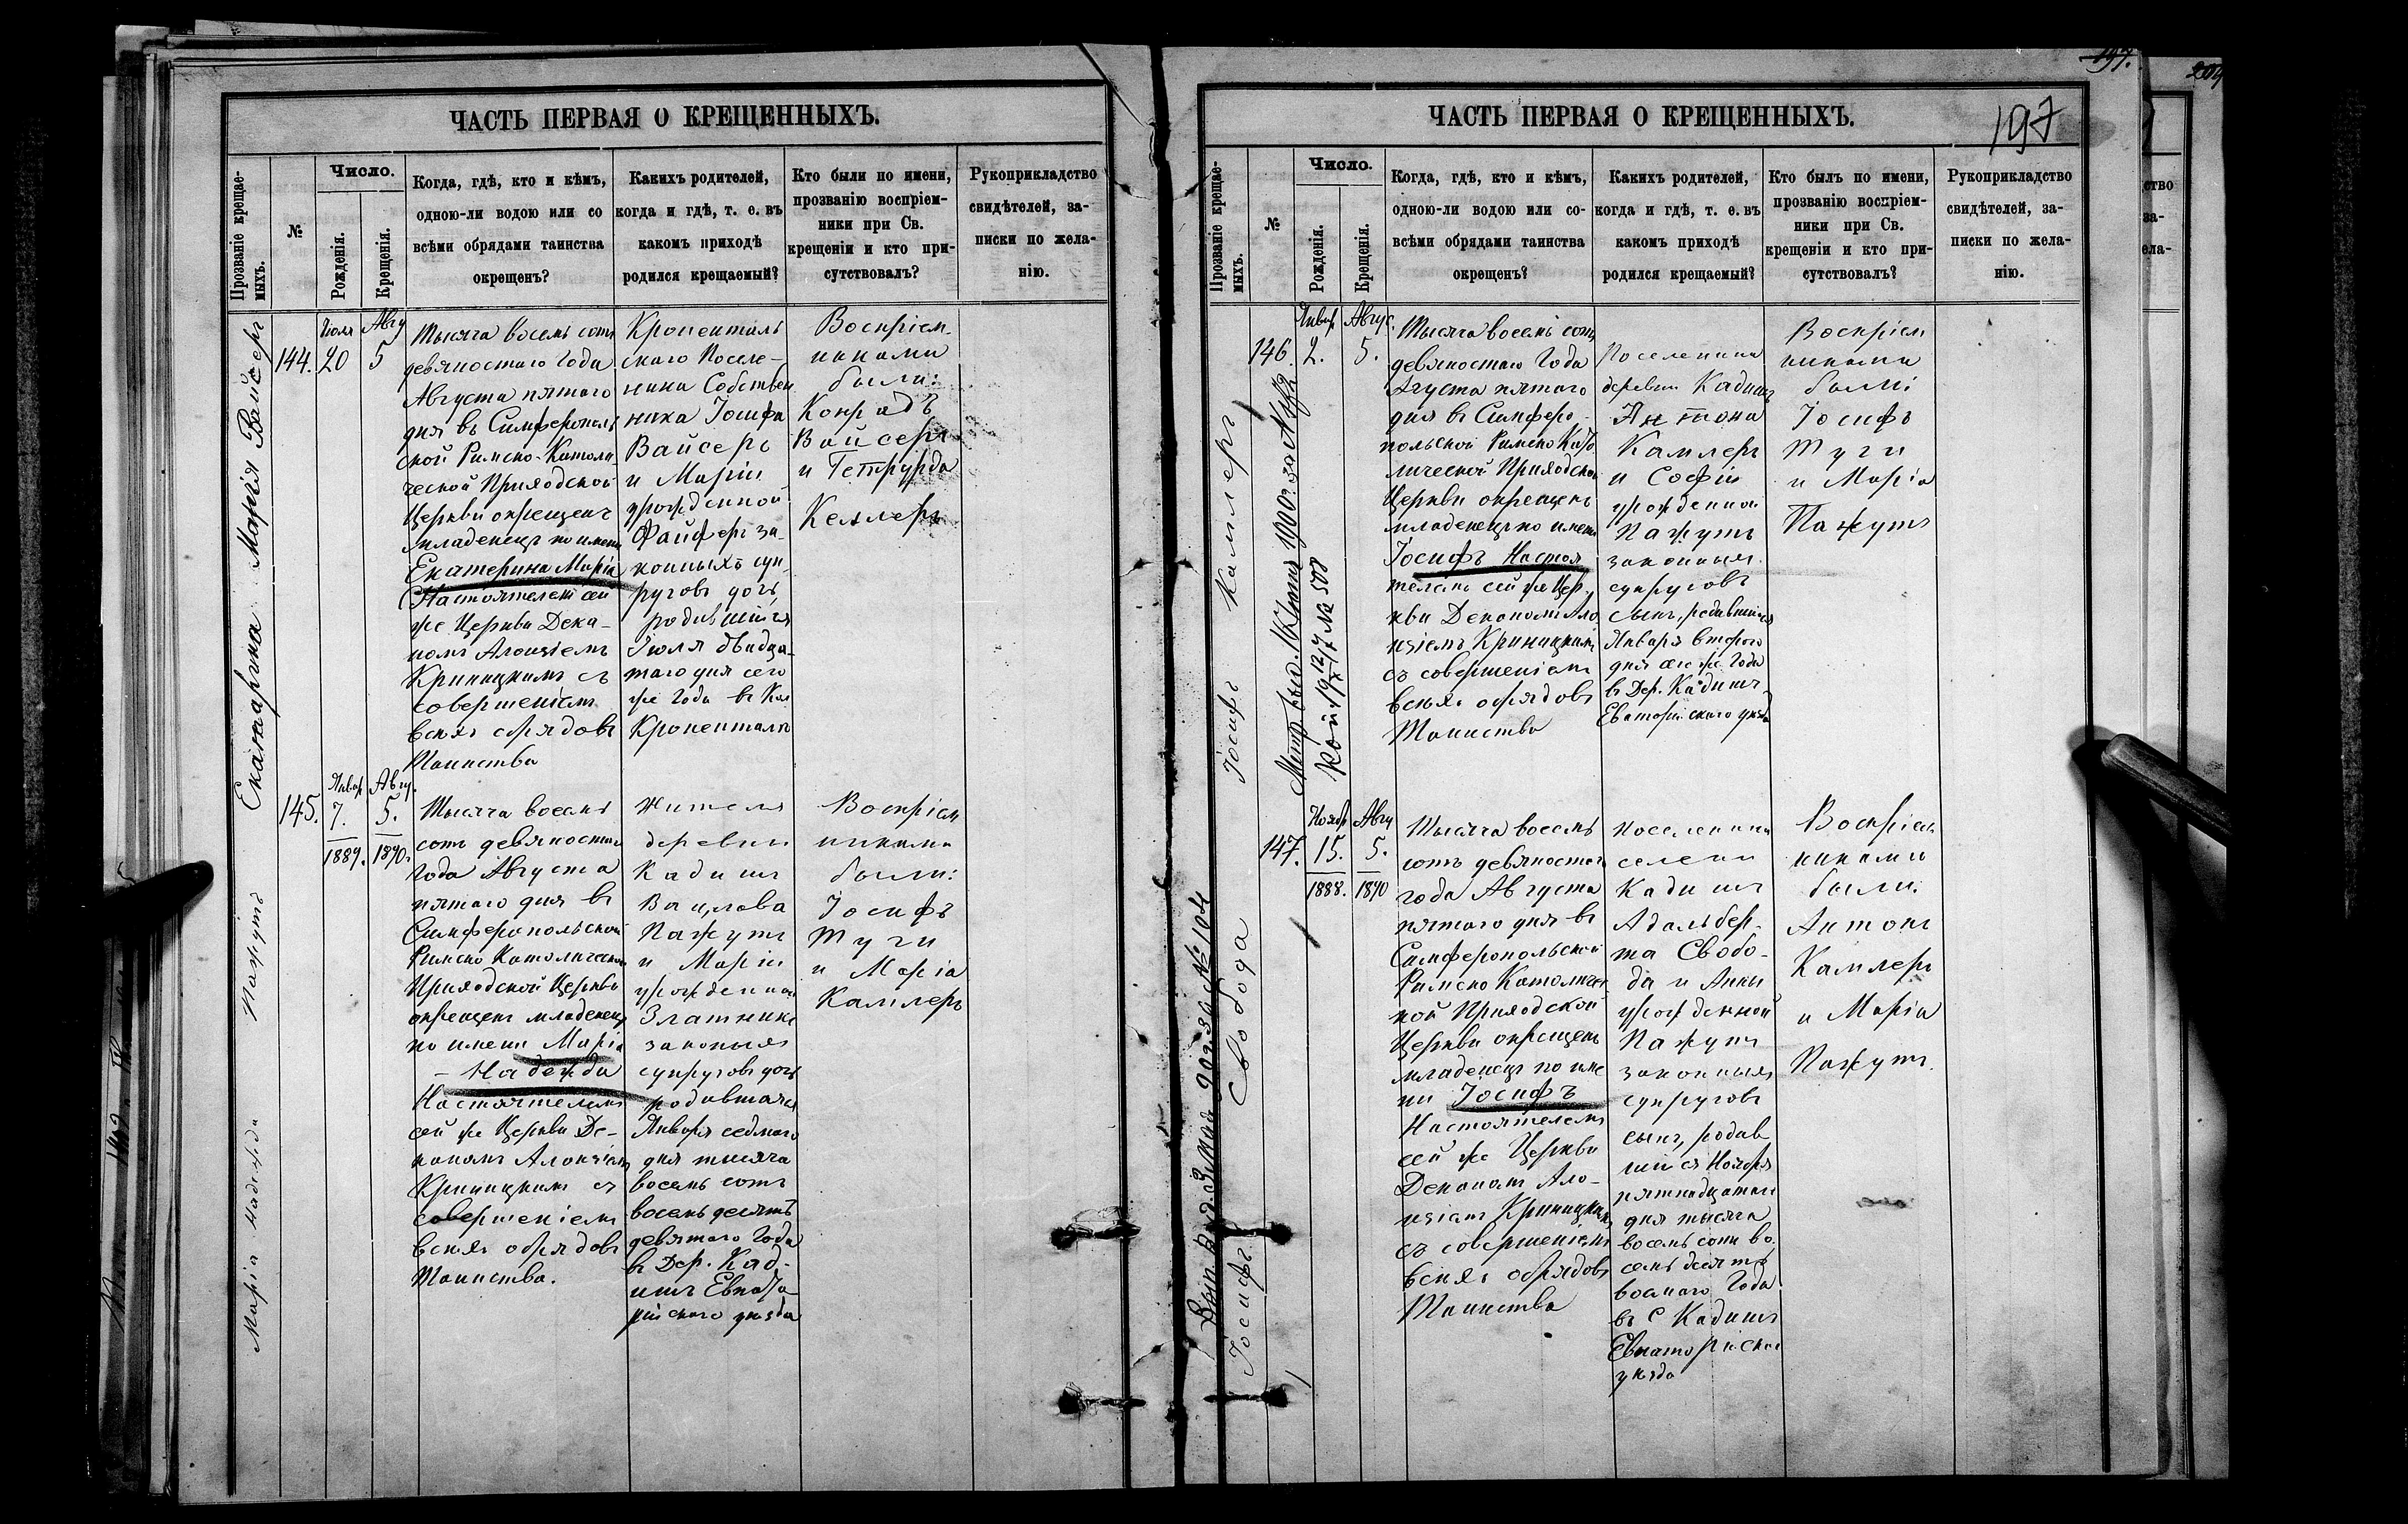 ЧАСТЬ ПЕРВАЯ О КРЕЩЕННЫХЪ.
Прозваніе крещае-
мыхъ.
№
Число.
Рожденія.
Крещенія.
Когда, гдѣ, кто и кѣмъ,
одною-ли водою или со
всѣми обрядами таинства
окрещенъ?
Какихъ родителей,
когда и гдѣ, т. е. въ
какомъ приходѣ
родился крещаемый?
Кто были по имени,
прозванію воспріем-
ники при Св.
крещеніи и кто при-
сутствовалъ?
Рукоприкладство
свидѣтелей, за-
писки по жела-
нію.
Екатарина Марія Вайсеръ
144.
Іюля
20
Авгу
5
Тысяча восемь сотъ
девяностаго Года
Августа пятаго
дня въ Симферополь
ской Римско-Католи
ческой Приходской
Церкви окрещенъ
младенецъ по имени
Екатерина Марія
Настоятелемъ сей
же Церкви Дека-
номъ Алоизіемъ
Криницкимъ съ
совершеніемъ
всѣхъ обрядовъ
Таинства
Кроненталь
скаго Поселе-
нина Собствен
ника Іосифа
Вайсеръ
и Маріи
урожденной
Файферъ за-
конныхъ суп-
руговъ дочь,
родившійся
Іюля двадца-
таго дня сего
же Года въ Кол
Кроненталь
Воспріем-
никами
были:
Конрадъ
Вайсеръ
и Гетруда
Келлеръ
Марія Надежда Пажутъ
145.
Январ
7.
1889.
Авгу.
5.
1890.
Тысяча восемь
сотъ девяностаго
Года Августа
пятаго дня въ
Симферопольской
Римско Католической
Приходской Церкви
окрещенъ младенецъ
по имени Марія
- Надежда
Настоятелемъ
сей же Церкви Де-
каномъ Алоизіемъ
Криницкимъ съ
совершеніемъ
всѣхъ обрядовъ
Таинства.
Жителя
деревни
Кадишъ
Вацлава
Пажутъ
и Маріи
урожденной
Златника
законныхъ
супруговъ дочь
родившаяся
Января седмаго
дня тысяча
восемь сотъ
восемьдесятъ
девятаго Года
въ Дер. Кад-
ишъ Евпато
рійскаго уѣзда
Воспріем
никами
были:
Іосифъ
Туги
и Марія
Камлеръ
ЧАСТЬ ПЕРВАЯ О КРЕЩЕННЫХЪ.
197
197.
Прозваніе крещае-
мыхъ.
№
Число.
Рожденія.
Крещенія.
Когда, гдѣ, кто и кѣмъ,
одною-ли водою или со-
всѣми обрядами таинства
окрещенъ?
Какихъ родителей,
когда и гдѣ, т. е. въ
какомъ приходѣ
родился крещаемый?
Кто былъ по имени,
прозванію воспріем-
ники при Св.
крещеніи и кто при-
сутствовалъ?
Рукоприкладство
свидѣтелей, за-
писки по жела-
нію.
Іосифъ Камлеръ
146.
Январ
2.
Авгус.
5.
Тысяча восемь сотъ
девяностаго Года
Августа пятаго
дня въ Симферо-
польской Римско Като
лической Приходской
Церкви окрещенъ
младенецъ по имени
Іосифъ Настоя
телемъ сей же Цер-
кви Деканомъ Ало
изіемъ Криницкимъ
съ совершеніемъ
всѣхъ обрядовъ
Таинства
Поселенина
деревни Кадишъ
Антона
Камлеръ
и Софіи
урожденной
Пажутъ
законныхъ
супруговъ
сынъ, родившійся
Января втораго
дня сего же Года
въ Дер. Кадишъ
Евпаторійскаго уѣзда
Воспріем
никами
были:
Іосифъ
Туги
и Марія
Пажутъ
Іосифъ Свобода
147.
Нояб
15.
1888.
Авгу
5.
1890
Тысяча восемь
сотъ девяностаго
года Августа
пятаго дня въ
Симферопольской
Римско Католичес
кой Приходской
Церкви окрещенъ
младенецъ по име
ни Іосифъ
Настоятелемъ
сей же Церкви
Деканомъ Ало-
изіемъ Криницкимъ
съ совершеніемъ
всѣхъ обрядовъ
Таинства
Поселенина
селени
Кадишъ
Адальбер-
та Свобо-
да и Анны
урожденной
Пажутъ
законныхъ
супруговъ
сынъ, родив
шійся Ноября
пятнадцатаго
дня тысяча
восемь сотъ во-
семь десятъ
восмаго Года
въ С Кадишъ
Евпаторійскаго
уѣзда
Воспріем
никами
были:
Антонъ
Камлеръ
и Марія
Пажутъ.